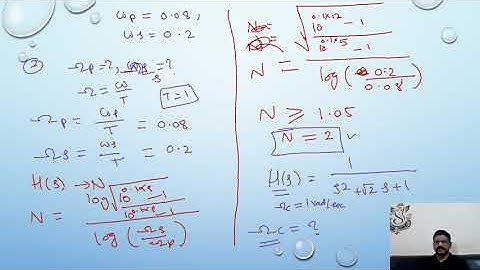 ωp = 0.08,
ωs = 0.2
② Ωp=?, Ωs=?
Ω = ω/T  T=1
Ωp = ωp/T = 0.08
Ωs = ωs/T = 0.2
H(s) → N
N = log √(10^0.1αs −1 / 10^0.1αp −1) / log(Ωs/Ωp)
N = √(10^0.1×12 −1 / 10^0.1×5 −1) / log(0.2/0.08)
N ≥ 1.05
N = 2 ✓
H(s) = 1 / s2+√2 s+1
Ωc = 1 rad/sec
Ωc = ?